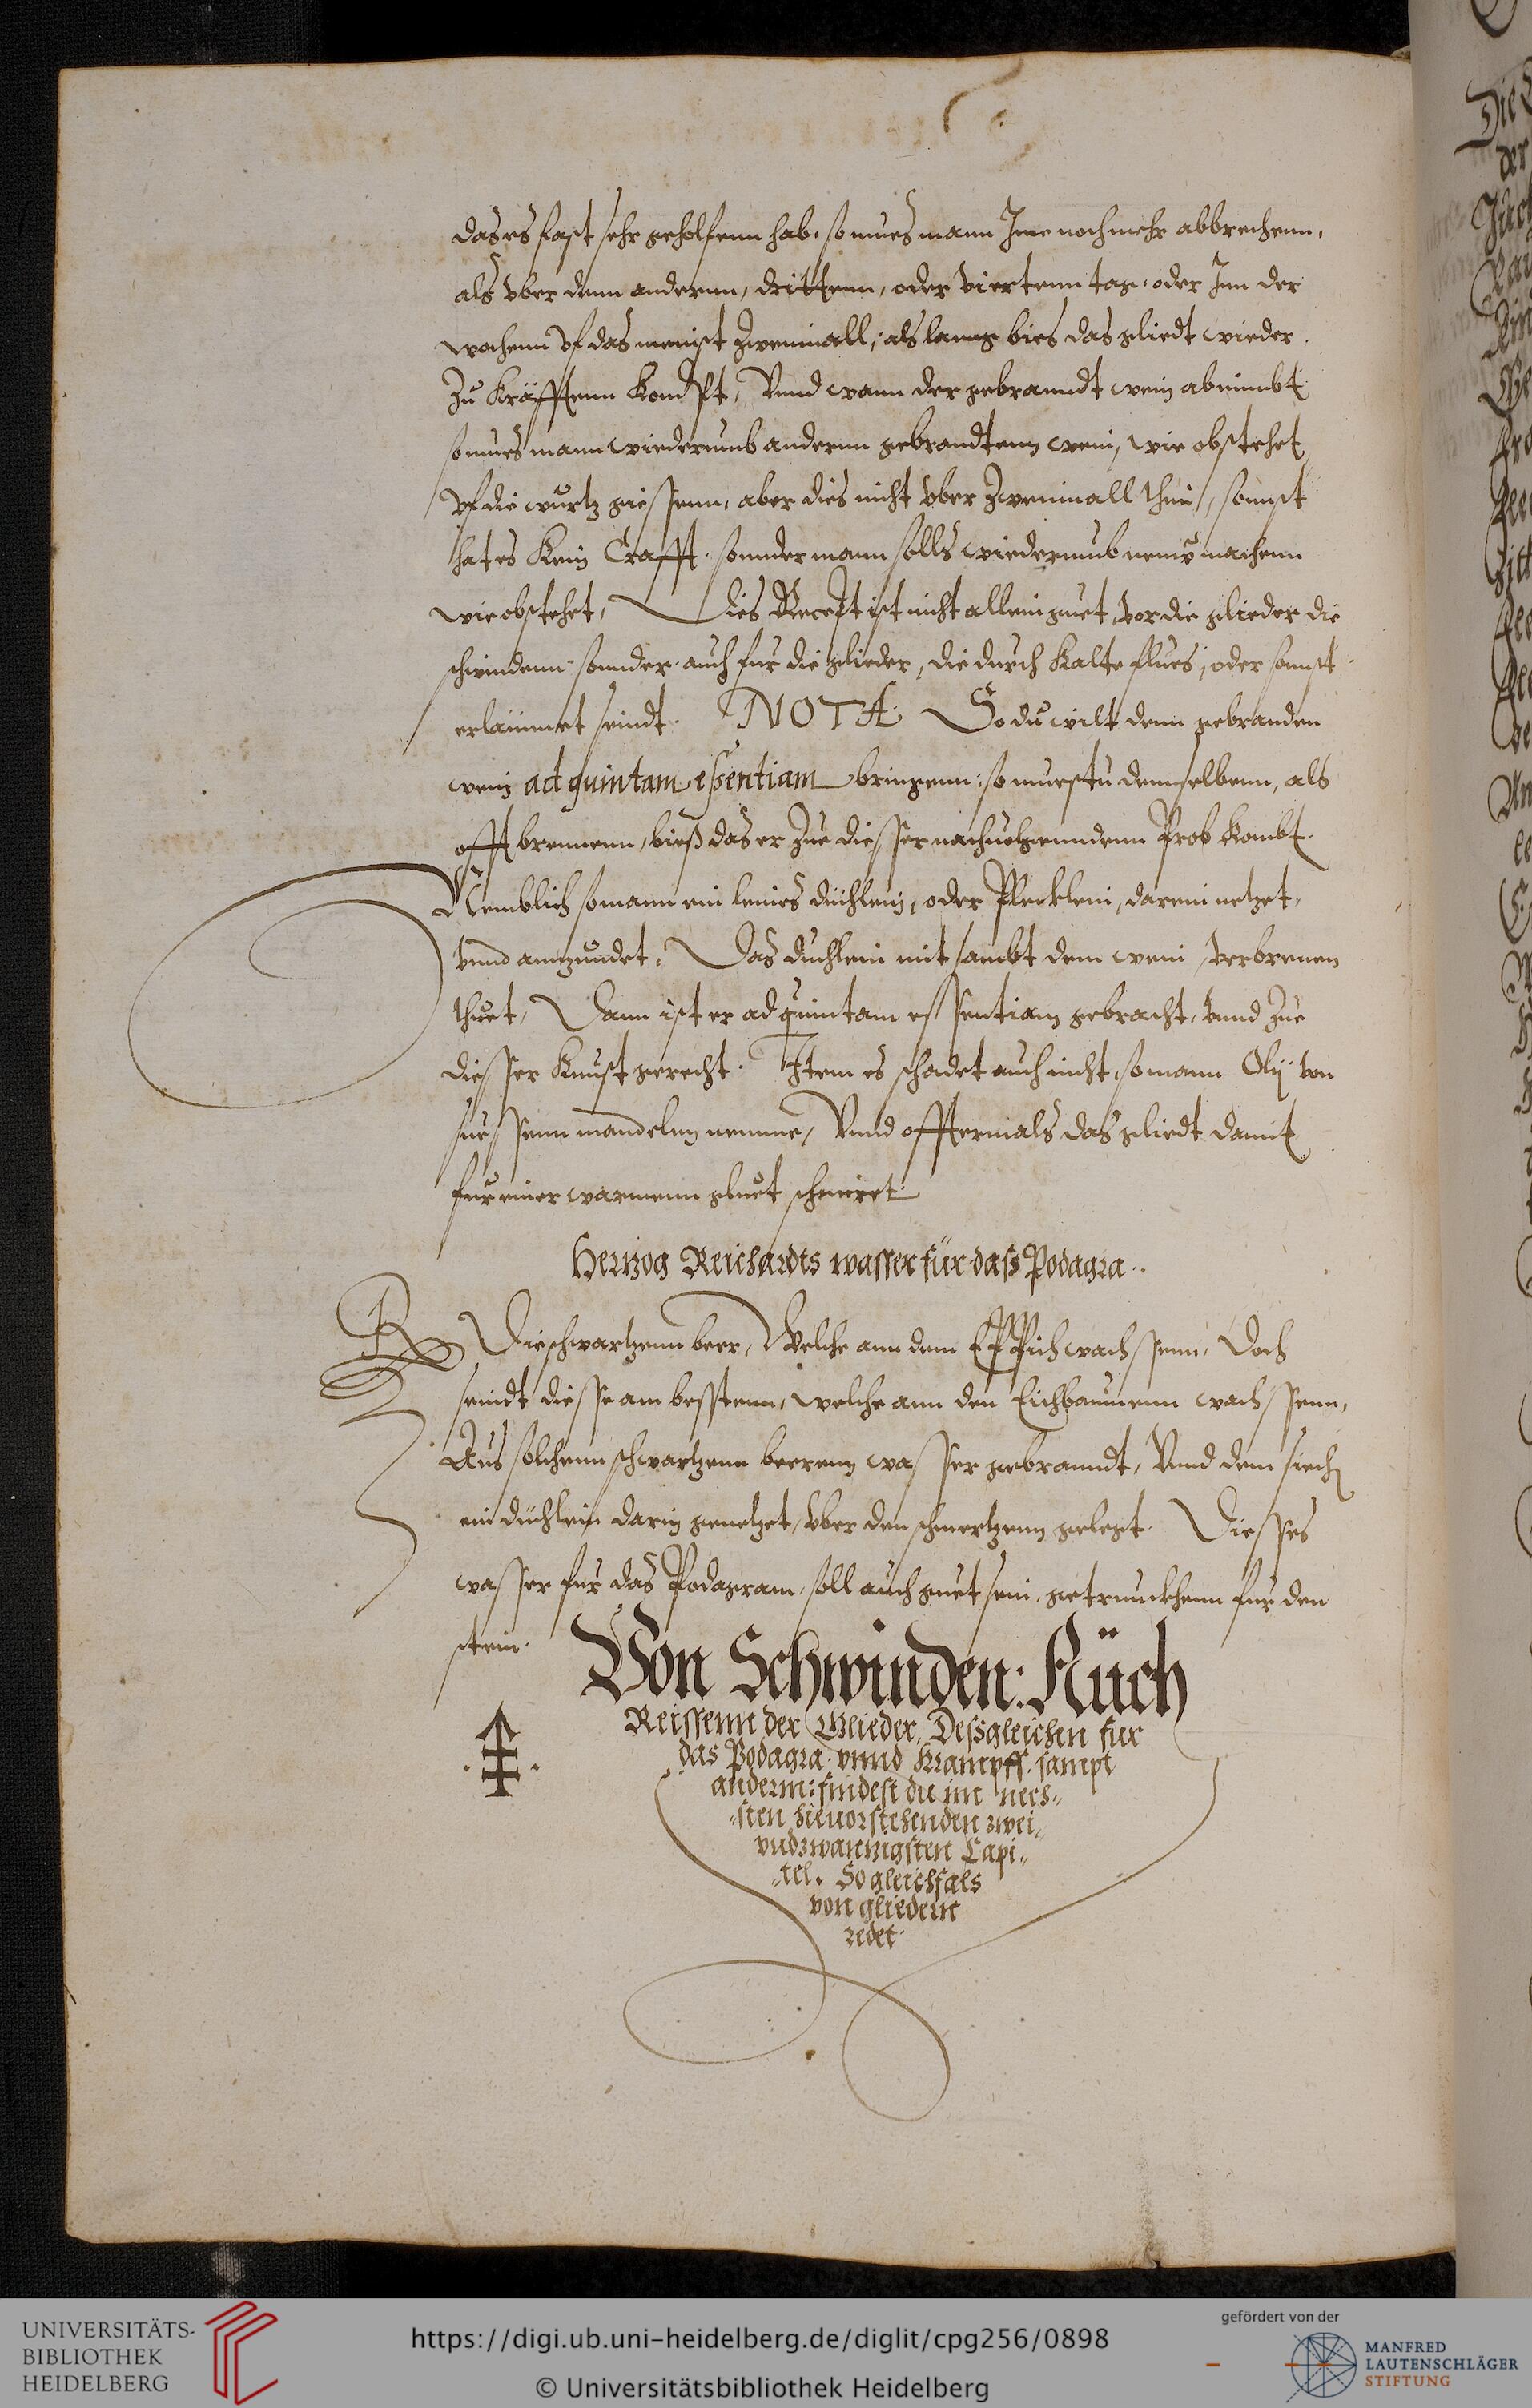 das es fast sehr geholfenn hab, so mues mann Ime noch mehr abbrechenn,
als vber denn andernn, drittenn, oder viertenn tag, oder Inn der
wochenn vf das menist Zwenmall, als lanng bies das gliedt wieder
Zu Kräfftenn Kompt, Vnnd wann der gebranndt wein abnimbt
so mues mann wiederumb anderenn gebrandtenn wein, wie obstehet
vf die wurtz giessenn, aber dies nicht vber Zwenmall thun, sonnst
hat es Kein Crafft. sonnder mann solls wiederumb neuw machenn
wie obstehet, Dies Recept ist nicht allein guet, vor die glieder die
schwindenn sonnder auch fur die glieder, die durch Kalte flues, oder sonnst
erlammet seindt. NOTA. So du wilt denn gebranden
wein ad quintam essentiam bringenn: so muestu denselbenn, als
offt brennenn, bieß das er Zue diesser nachuolgenndenn Prob Kombt.
Nemblich so mann ein leines düchlein, oder Flecklein, darein netzet,
vnnd annzundet, Das duchlein mit sambt dem wein verbrenen
thuet, Dann ist er ad quintam essentiam gebracht, vnnd Zue
diesser Kunst gerecht. Item es schadet auch nicht, so mann Olÿ von
suessenn mandelnn nemme, Vnnd offtermals das gliedt damit
fur einer warmenn gluet schmiret
Hertzog Reichardts wasser für dass Podagra.
R Die schwartzenn beer, Welche ann dem Eppich wachssenn, Doch
seindt diesse am besstenn, welche ann den Eichbaumenn wachssenn,
Aus solchenn schwartzenn beerenn wasser gebranndt, Vnnd dem siech
ein düchlein darin genetzet, vber den schmertzenn gelegt. Diesses
wasser fur das Podagram, soll auch guet sein, getrunckhenn fur den
stein.
Von Schwinden: Auch
Reissenn der Glieder, Dessgleichen fur
das Podagra. vnnd Krampff. sampt
anderm: findest du im nech-
-sten hieuorstehenden zwei-
vndzwanzigsten Capi-
-tel. So gleichfals
von gliedern
redet.
UNIVERSITÄTS-
BIBLIOTHEK
HEIDELBERG
https://digi.ub.uni-heidelberg.de/diglit/cpg256/0898
© Universitätsbibliothek Heidelberg
gefördert von der
MANFRED
LAUTENSCHLÄGER
STIFTUNG